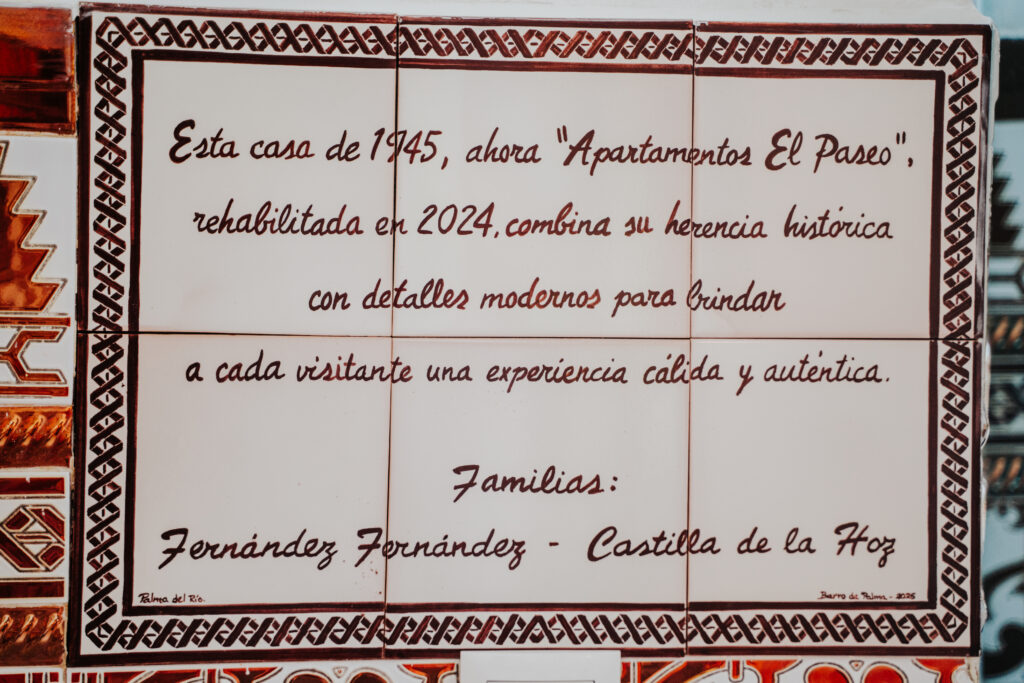 Esta casa de 1945, ahora "Apartamentos El Paseo",
rehabilitada en 2024, combina su herencia histórica
con detalles modernos para brindar
a cada visitante una experiencia cálida y auténtica.
Familias:
Fernández Fernández - Castilla de la Hoz
Palma del Río.
Barro de Palma - 2025